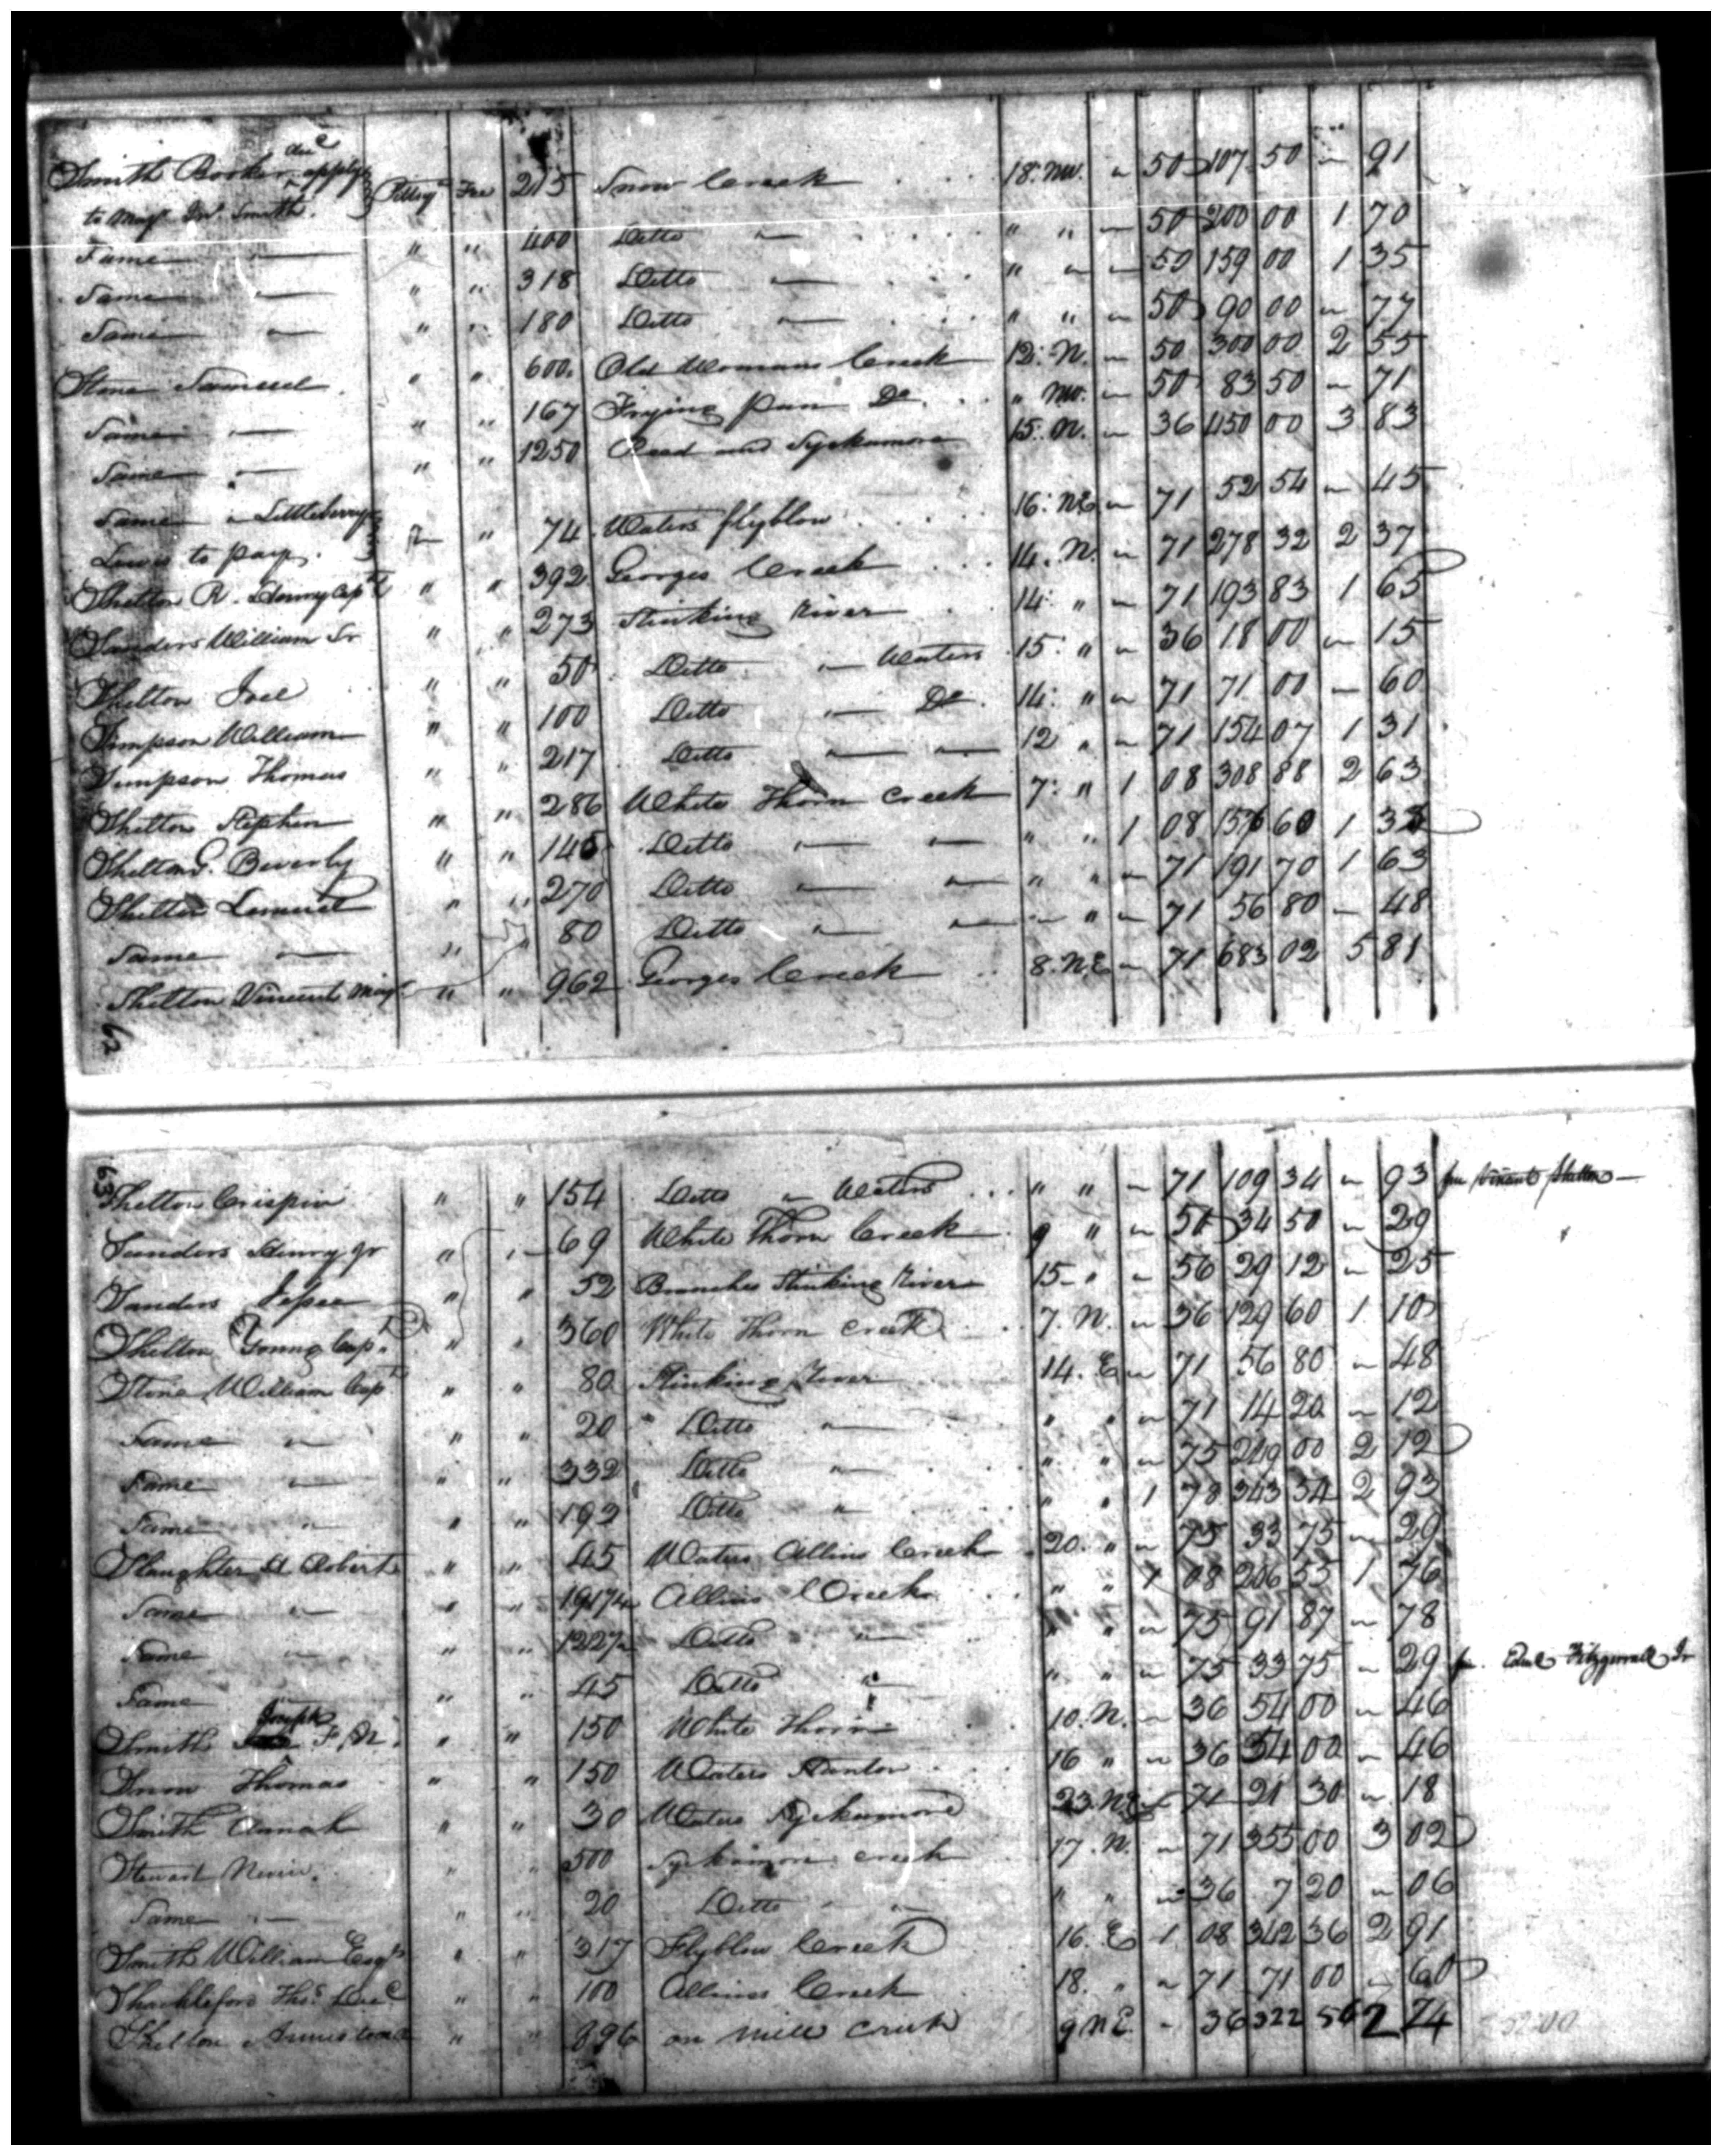 Smith Booker decd apply } Pittsa Fee 215 Snow Creek . . . 18. NW. " 50 107 50 " 91
to Majr Jno. Smith.
Same — " " 400 Ditto — . . . " " — 50 200 00 1 70
Same — " " 318 Ditto — . . . " " — 50 159 00 1 35
Same — " " 180 Ditto — . . . " " — 50 90 00 " 77
Stone Samuel " " 600. Old Womans Creek 12. N. — 50 300 00 2 55
Same — " " 167 Frying pan Do. . . " NW. — 50 83 50 " 71
Same — " " 1250 Reed and Syckamore 15. N. — 36 450 00 3 83
Same — Littleberry } " " 74. Waters flyblow . . . 16. NE — 71 52 54 — 45
Lewis to pay. }
Shelton R. Henry Capt " " 392 Georges Creek . . . 14. N. — 71 278 32 2 37
Sanders William Sr " " 273 Stinking River . . 14. " — 71 193 83 1 65
Shelton Joel " " 50 Ditto — Waters 15. " — 36 18 00 — 15
Simpson William " " 100 Ditto — Do. 14. " — 71 71 00 — 60
Simpson Thomas " " 217 Ditto — — 12 " — 71 154 07 1 31
Shelton Stephen " " 286 White Thorn Creek 7. " 1 08 308 88 2 63
Shelton G. Beverly " " 145 Ditto — — " " 1 08 156 60 1 33
Shelton Lemuel " " 270 Ditto — — " " — 71 191 70 1 63
Same — " " 80 Ditto — — " " — 71 56 80 — 48
Shelton Vincent Majr " " 962 Georges Creek . . 8. NE — 71 683 02 5 81
62
63
Shelton Crispin " " 154 Ditto — Waters . . . " " — 71 109 34 — 93 per Vincent Shelton —
Sanders Henry Jr " " 69 White Thorn Creek 9 " — 50 34 50 — 29
Sanders Jesse " " 52 Branches Stinking River 15 " — 56 29 12 — 25
Shelton Young Capt. " " 360 White Thorn Creek . . 7. N. — 36 129 60 1 10
Stone William Capt " " 80 Stinking River 14. E — 71 56 80 — 48
Same — " " 20 Ditto — " " — 71 14 20 — 12
Same — " " 332 Ditto — . . " " — 75 249 00 2 12
Same — " " 193 Ditto " . . " " 1 78 343 54 2 93
Slaughter H Robert " " 45 Waters Allins Creek 20. " — 75 33 75 — 29
Same — " " 191¼ Allins Creek . . " " 1 08 206 55 1 76
Same — " " 122½ Ditto — " " — 75 91 87 — 78
Same " " 45 Ditto — " " — 75 33 75 — 29 per Edmd Fitzgerrald Jr
Smith Joseph F. N. " " 150 White Thorn 10. N. — 36 54 00 — 46
Snow Thomas " " 150 Waters Stanton . . 16 " — 36 54 00 — 46
Smith Annah " " 30 Waters Syckamore 23. NE — 71 21 30 — 18
Stewart " " 500 Syckamore Creek 17. N. — 71 355 00 3 02
Same — " " 20 Ditto — — " " — 36 7 20 — 06
Smith William Esqr " " 317 Flyblow Creek 16. E 1 08 342 36 2 91
Shackleford Thos. Decd " " 100 Allins Creek 18. " — 71 71 00 — 60
Shelton Armistead " " 896 on Mill Creek 9 NE — 36 322 56 2 74